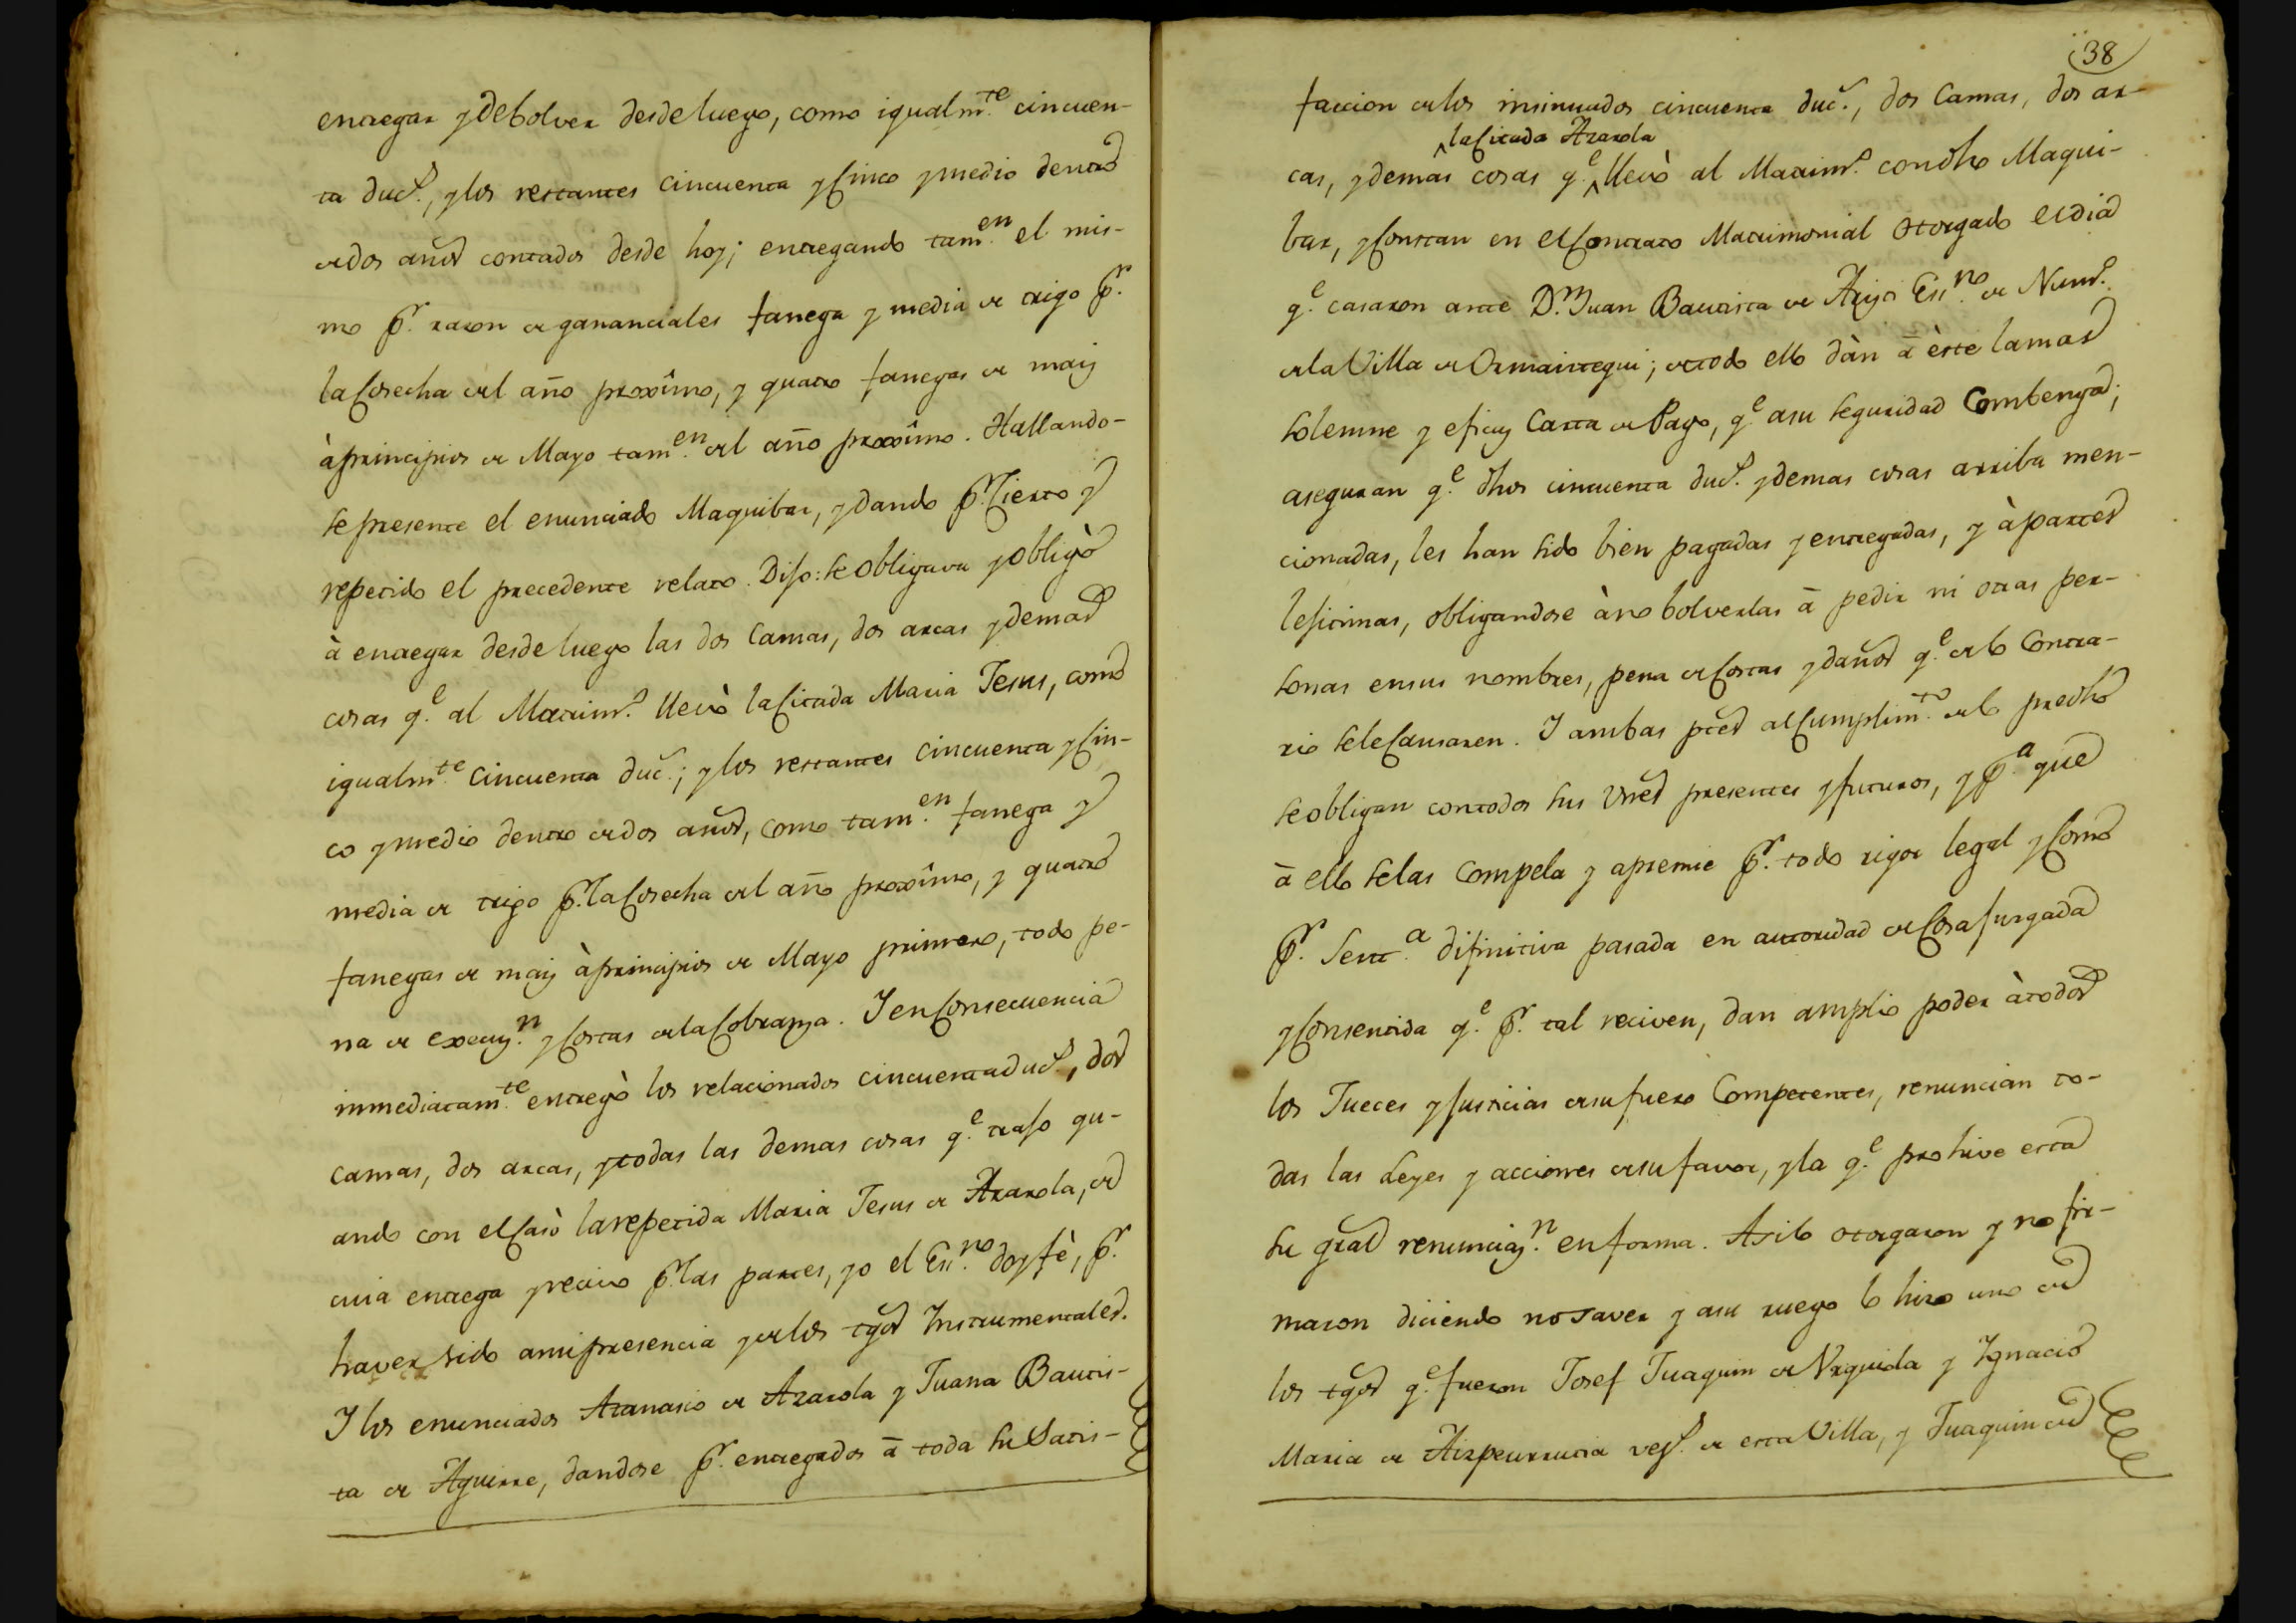 entregar y debolver desde luego, como igualm.te cincuen-
ta duc.s, y los restantes cincuenta y Cinco y medio dentro
de dos años contados desde hoy; entregando tam.en el mis-
mo p.r razon de gananciales fanega y media de trigo p.r
la Cosecha del año proximo, y quatro fanegas de maiz
à principios de Mayo tam.en del año proximo. Hallando-
se presente el enunciado Maquibar, y dando p.r Cierto y
repetido el precedente relato. Dijo: se obligava y obligò
à entregar desde luego las dos Camas, dos arcas y demas
cosas q.e al Matrim.o llevò la Citada Maria Jesus, como
igualm.te Cincuenta duc.s; y los restantes cincuenta y Cin-
co y medio dentro de dos años, como tam.en fanega y
media de trigo p.r la Cosecha del año proximo, y quatro
fanegas de maiz à principios de Mayo primero, todo pe-
na de execuz.n y Costas de la Cobranza. Y en Consecuencia
inmediatam.te entregò los relacionados cincuenta duc.s, dos
camas, dos arcas, y todas las demas cosas q.e trajo qu-
ando con el Casò la repetida Maria Jesus de Azarola, de
cuia entrega y recivo p.r las partes, yo el Ess.no doy fè, p.r
haver sido a mi presencia y de los tgos Instrumentales.
Y los enunciados Atanasio de Azarola y Juana Bautis-
ta de Aguirre, dandose p.r entregados à toda su Satis-
38
faccion de los insinuados cincuenta duc.s, dos Camas, dos ar-
la Citada Azarola
cas, y demas cosas q.e llevò al Matrim.o con dho Maqui-
bar, y Constan en el Contrato Matrimonial otorgado el dia
q.e casaron ante D.n Juan Bautista de Ariz Ess.no de Num.o
de la Villa de Ormaiztegui; de todo ello dàn à èste la mas
solemne y eficaz Carta de Pago, q.e a su seguridad Combenga;
aseguran q.e dhos cincuenta duc.s y demas cosas arriba men-
cionadas, les han sido bien pagadas y entregadas, y à partes
lejitimas, obligandose à no bolverlas à pedir ni otras per-
sonas en sus nombres, pena de Costas y daños q.e de lo Contra-
rio se le Causaren. Y ambas ptes al Cumplim.to de lo predho
se obligan con todos sus Vnes presentes y futuros, y p.a que
à ello se las Compela y apremie p.r todo rigor legal y Como
p.r Sent.a difinitiva pasada en autoridad de Cosa jusgada
y Consentida q.e p.r tal reciven, dan amplio poder à todos
los Jueces y justicias de su fuero Competentes, renuncian to-
das las Leyes y acciones de su favor, y la q.e prohive esta
su gral renunciaz.n en forma. Asi lo otorgaron y no fir-
maron diciendo no saver y a su ruego lo hizo uno de
los tgos q.e fueron Josef Juaquin de Vrguiola y Ygnacio
Maria de Aizpeurrutia vez.s de esta Villa, y Juaquin de